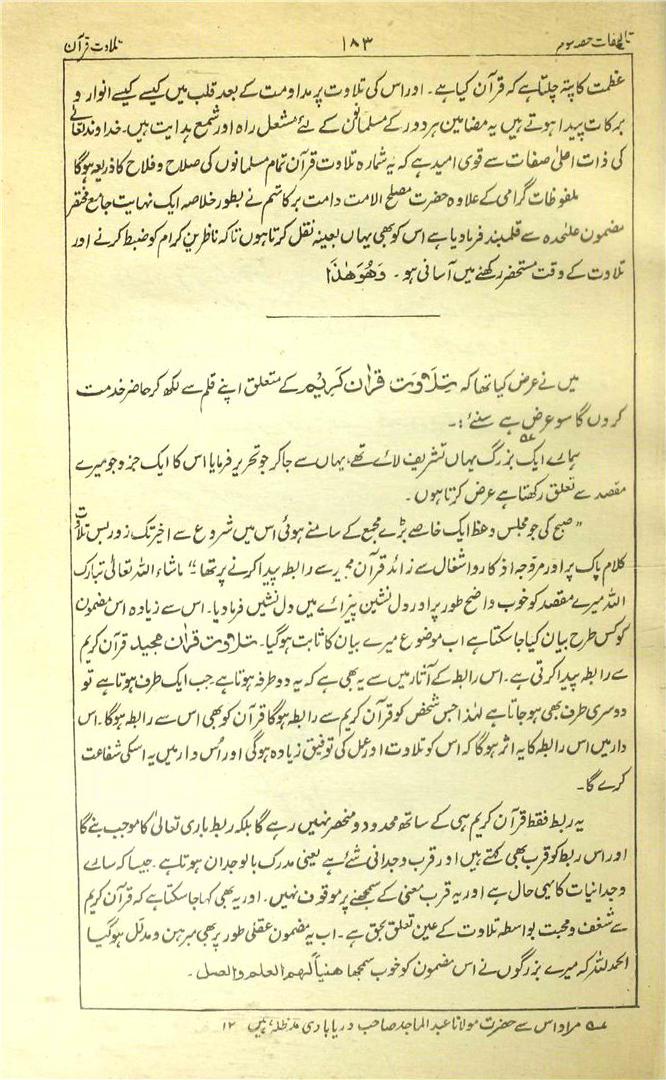 تالیفات حصہ سوم ۱۸۳ تلاوت قرآن
عظمت کا پتہ چلتا ہے کہ قرآن کیا ہے۔ اور اس کی تلاوت پر مداومت کے بعد قلب میں کیسے کیسے انوار و
برکات پیدا ہوتے ہیں یہ مضامین ہر دور کے مسلمانوں کے لئے مشعل راہ اور شمع ہدایت ہیں۔ خداوند تعالےٰ
کی ذات اعلیٰ صفات سے قوی امید ہے کہ یہ شمارہ تلاوت قرآن تمام مسلمانوں کی صلاح و فلاح کا ذریعہ ہوگا
ملفوظات گرامی کے علاوہ حضرت مصلح الامت دامت برکاتہم نے بطور خلاصہ ایک نہایت جامع مختصر
مضمون علٰحدہ سے قلمبند فرمادیا ہے اس کو بھی یہاں بعینہ نقل کرتا ہوں تاکہ ناظرین کرام کو ضبط کرنے اور
تلاوت کے وقت مستحضر رکھنے میں آسانی ہو۔ وَهُوَ هٰذَا
میں نے عرض کیا تھا کہ تلاوت قراٰن کریم کے متعلق اپنے قلم سے لکھ کر حاضر خدمت
کروں گا سو عرض ہے سنئے :۔
ہمارے ایک بزرگ یہاں تشریف لائے تھے، یہاں سے جاکر جو تحریر فرمایا اس کا ایک جزو جو میرے
مقصد سے تعلق رکھتا ہے عرض کرتا ہوں۔
"صبح کی جو مجلس وعظ ایک خاصے بڑے مجمع کے سامنے ہوئی اس میں شروع سے اخیر تک زور بس تلاوت
کلام پاک پر اور مروجہ اذکار و اشغال سے زائد قرآن مجید سے رابطہ پیدا کرنے پر تھا"۔ ماشاء اللہ تعالیٰ تبارک
اللہ میرے مقصد کو خوب واضح طور پر اور دل نشین پیرائے میں دل نشیں فرمادیا۔ اس سے زیادہ اس مضمون
کو کس طرح بیان کیا جاسکتا ہے اب موضوع میرے بیان کا ثابت ہوگیا۔ تلاوت قراٰن مجید قرآن کریم
سے رابطہ پیدا کرتی ہے۔ اس رابطہ کے آثار میں سے یہ بھی ہے کہ یہ دو طرفہ ہوتا ہے جب ایک طرف ہوتا ہے تو
دوسری طرف بھی ہوجاتا ہے لہٰذا جس شخص کو قرآن کریم سے رابطہ ہوگا قرآن کو بھی اس سے رابطہ ہوگا۔ اس
دار میں اس رابطہ کا یہ اثر ہوگا کہ اس کو تلاوت اور عمل کی توفیق زیادہ ہوگی اور اُس دار میں یہ اسکی شفاعت
کرے گا۔
یہ ربط فقط قرآن کریم ہی کے ساتھ محدود و منحصر نہیں رہے گا بلکہ ربط باری تعالیٰ کا موجب بنے گا
اور اس ربط کو قرب بھی کہتے ہیں اور قرب وجدانی شئے ہے یعنی مدرک بالوجدان ہوتا ہے۔ جیسا کہ سارے
وجدانیات کا یہی حال ہے اور یہ قرب معنی کے سمجھنے پر موقوف نہیں۔ اور یہ بھی کہا جاسکتا ہے کہ قرآن کریم
سے شغف و محبت بواسطہ تلاوت کے عین تعلق بحق ہے۔ اب یہ مضمون عقلی طور پر بھی مبرہن و مدلل ہوگیا
الحمد للہ کہ میرے بزرگوں نے اس مضمون کو خوب سمجھا ھنیأ لھم العلم والعمل۔
عہ مراد اس سے حضرت مولانا عبدالماجد صاحب دریابادی مدظلہٗ ہیں ۱۲